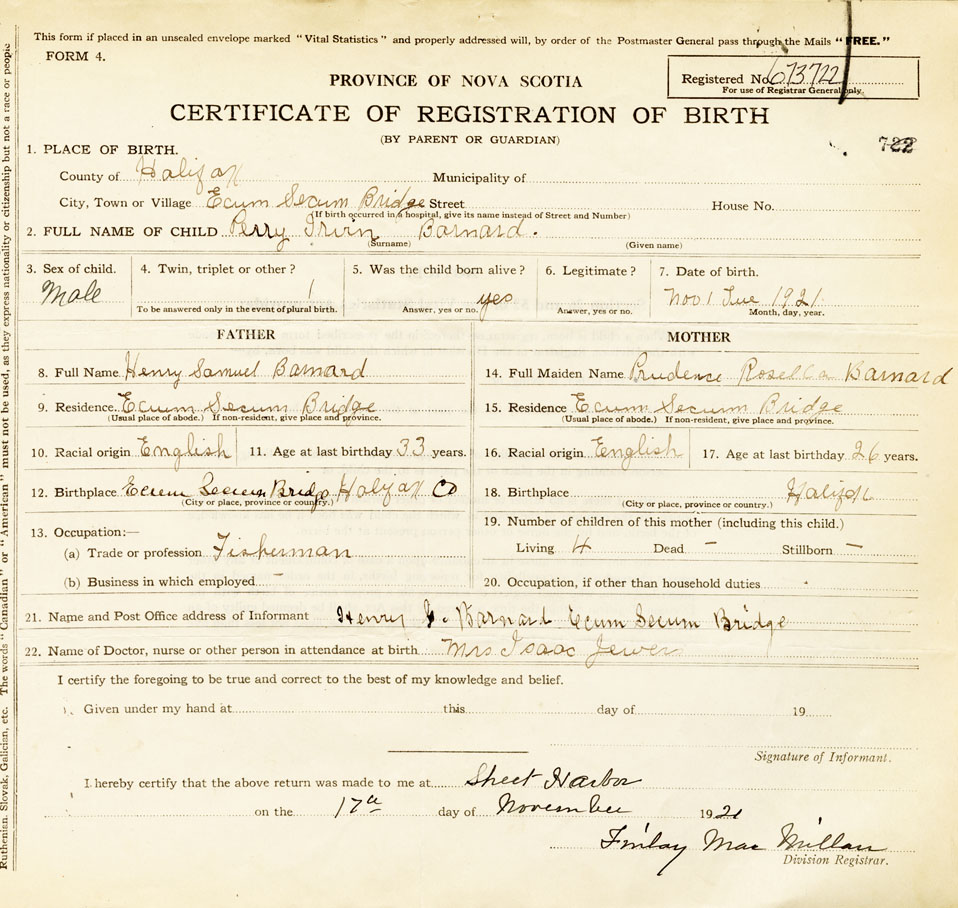 This form if placed in an unsealed envelope marked "Vital Statistics" and properly addressed will, by order of the Postmaster General pass through the Mails "FREE."
FORM 4.
Registered No. 673722
For use of Registrar General only.
PROVINCE OF NOVA SCOTIA
CERTIFICATE OF REGISTRATION OF BIRTH
(BY PARENT OR GUARDIAN)
722
1. PLACE OF BIRTH.
County of Halifax Municipality of
City, Town or Village Ecum Secum Bridge Street House No.
(If birth occurred in a hospital, give its name instead of Street and Number)
2. FULL NAME OF CHILD Perry Irvin Barnard.
(Surname) (Given name)
3. Sex of child. 4. Twin, triplet or other? 5. Was the child born alive? 6. Legitimate? 7. Date of birth.
Male 1 yes Nov 1 Tue 1921
To be answered only in the event of plural birth. Answer, yes or no. Answer, yes or no. Month, day, year.
FATHER
8. Full Name Henry Samuel Barnard
9. Residence Ecum Secum Bridge
(Usual place of abode.) If non-resident, give place and province.
10. Racial origin English 11. Age at last birthday 33 years.
12. Birthplace Ecum Secum Bridge Halifax Co
(City or place, province or country.)
13. Occupation:—
(a) Trade or profession Fisherman
(b) Business in which employed –
MOTHER
14. Full Maiden Name Prudence Rosella Barnard
15. Residence Ecum Secum Bridge
(Usual place of abode.) If non-resident, give place and province.
16. Racial origin English 17. Age at last birthday 26 years.
18. Birthplace Halifax
(City or place, province or country.)
19. Number of children of this mother (including this child.)
Living 4 Dead – Stillborn –
20. Occupation, if other than household duties
21. Name and Post Office address of Informant Henry S. Barnard Ecum Secum Bridge
22. Name of Doctor, nurse or other person in attendance at birth Mrs Isaac Jewers
I certify the foregoing to be true and correct to the best of my knowledge and belief.
Given under my hand at this day of 19
Signature of Informant.
I hereby certify that the above return was made to me at Sheet Harbor
on the 17th day of November 1921
Finlay Mac Millan
Division Registrar.
Ruthenian, Slovak, Galician, etc. The words "Canadian" or "American" must not be used, as they express nationality or citizenship but not a race or people